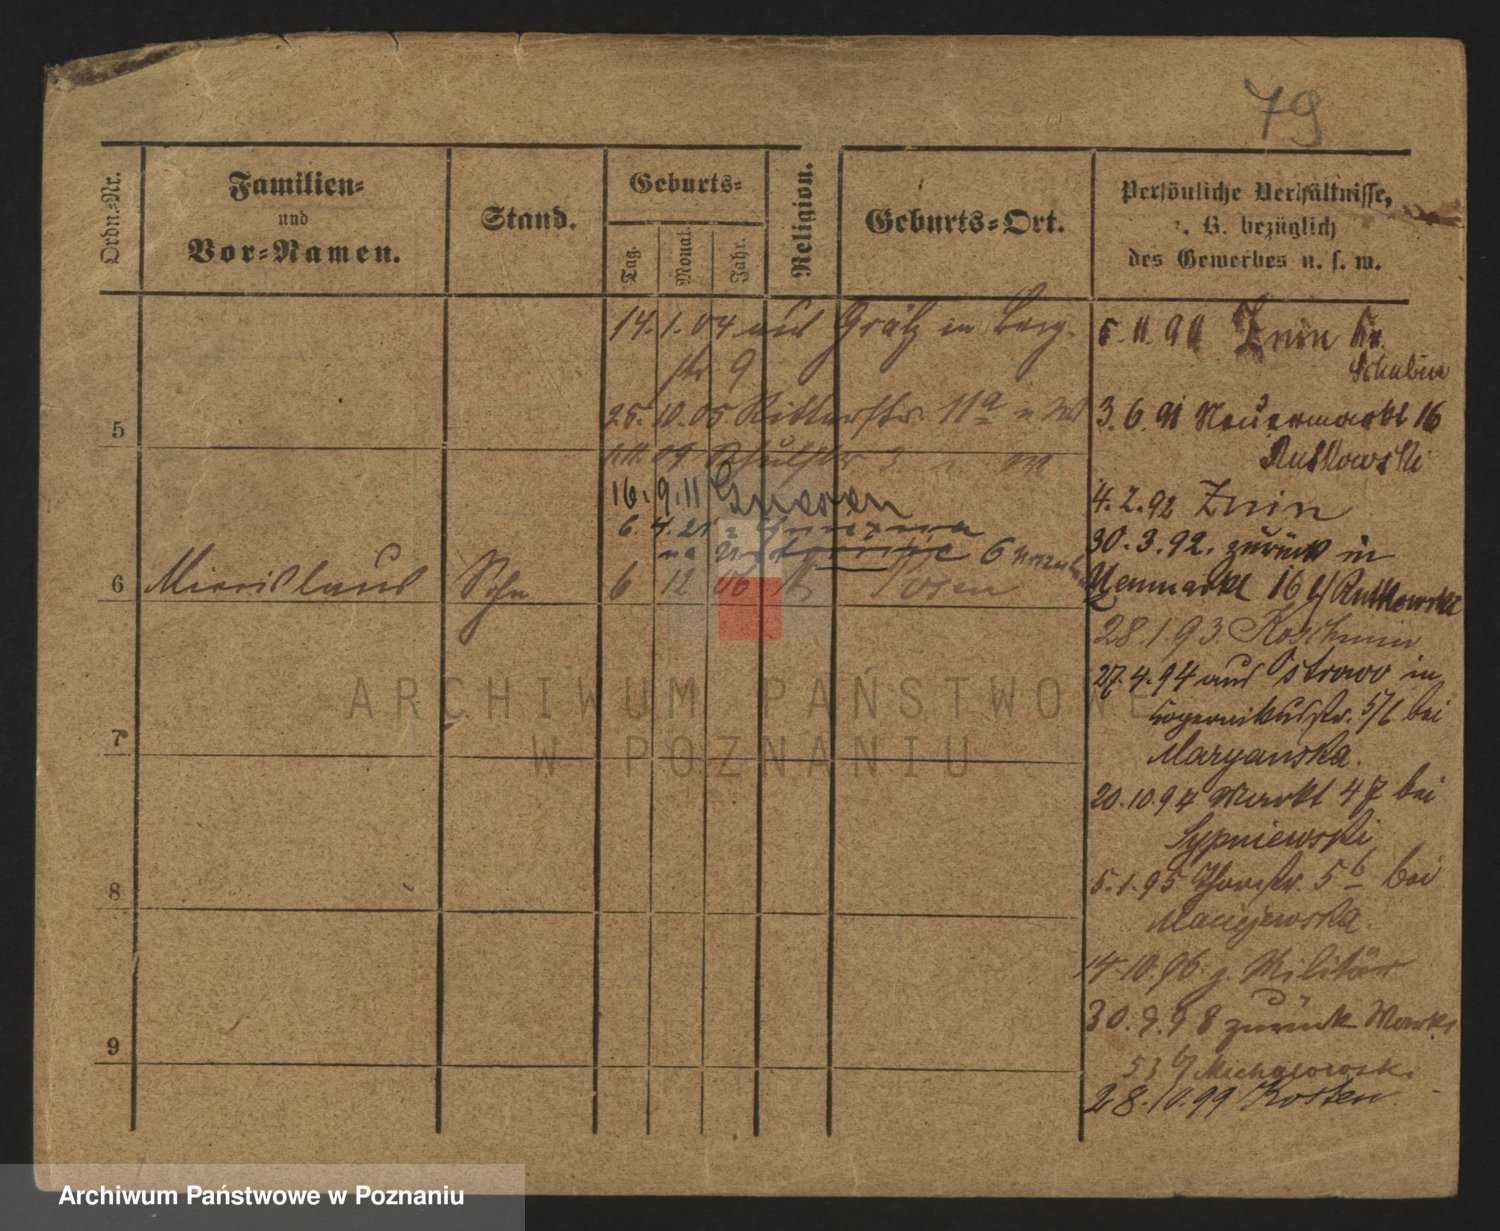 79
Ordn.-Nr.
Familien-
und
Vor-Namen.
Stand.
Geburts-
Tag.
Monat.
Jahr.
Religion.
Geburts-Ort.
Persönliche Verhältnisse,
z. B. bezüglich
des Gewerbes u. s. w.
14.1.04 aus Grätz in Berg-
str 9
25.10.05 Ritterstr. 11a
5
09 Schulstr 3
16.9.11 Gnesen
6.4.21 z Gniezna
na 6
6 Miecislaus Sohn 6 12 06 k Posen
7
8
9
5.11.90 Znin Kr.
Schubin
3.6.91 Neuermarkt 16
Rutkowski
4.2.92 Znin
30.3.92. zurück in
Neumarkt 16 b/ Rutkowski
28.1.93. Koschmin
27.4.94 aus Ostrowo in
Kopernikusstr. 5/6 bei
Maryanska.
20.10.94 Markt 47 bei
Sypniewski
5.1.95 Thorstr. 5b bei
Maciejewska.
14.10.96 z. Militär
30.9.98 zurück Markt
53 b/
28.10.99 Kosten
ARCHIWUM PAŃSTWOWE
W POZNANIU
Archiwum Państwowe w Poznaniu